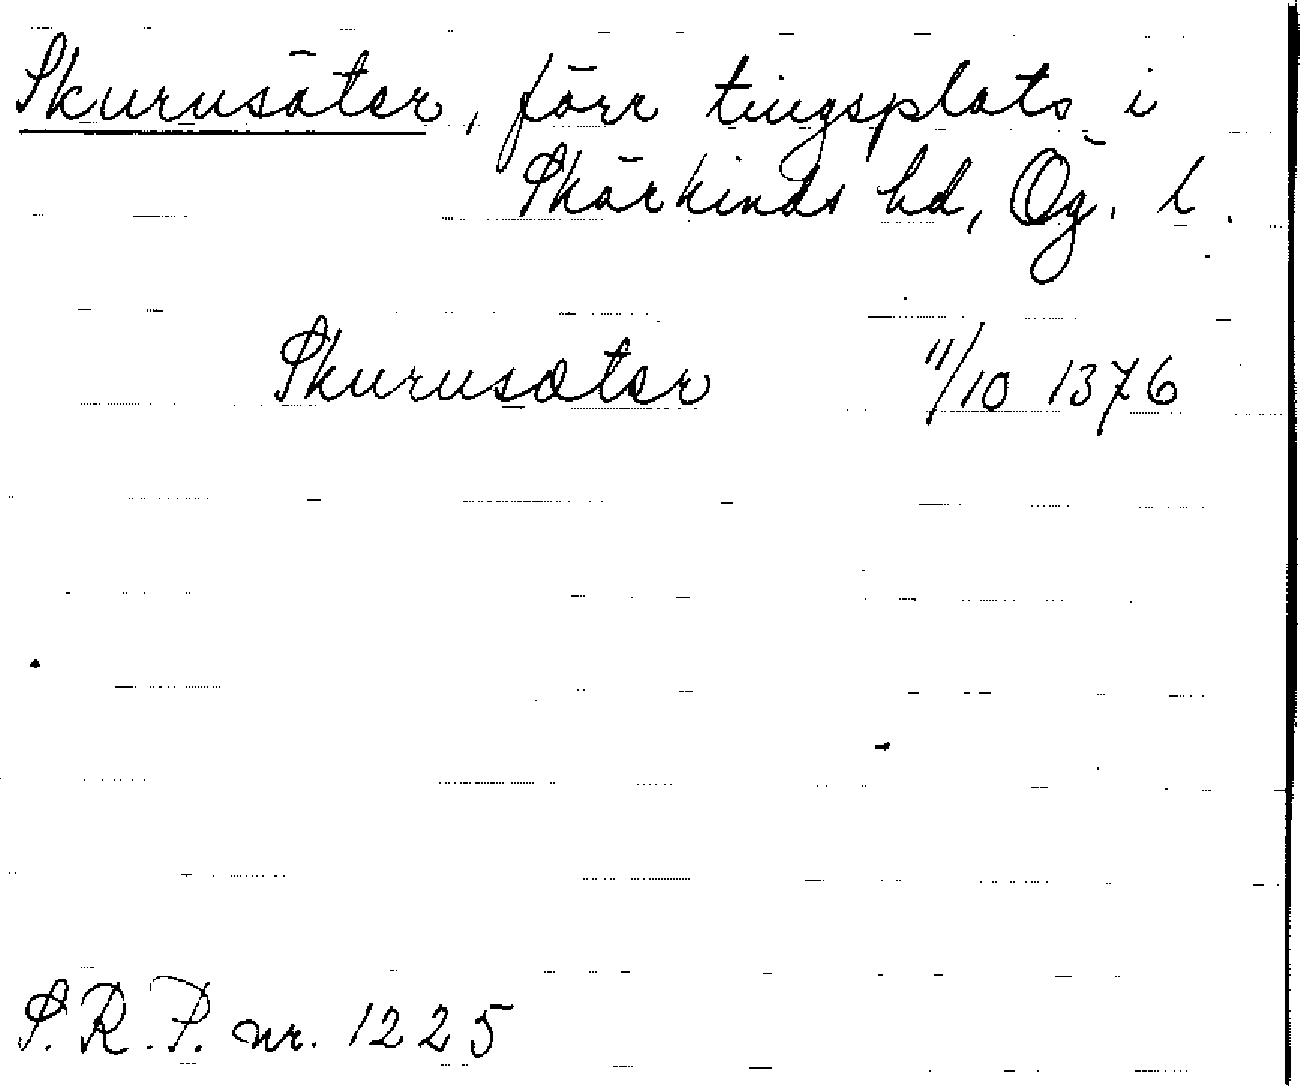 Skurusäter, förr tingsplats i
Skärkinds hd, Ög. l.
Skurusæter 11/10 1376
S.R.P. nr. 1225